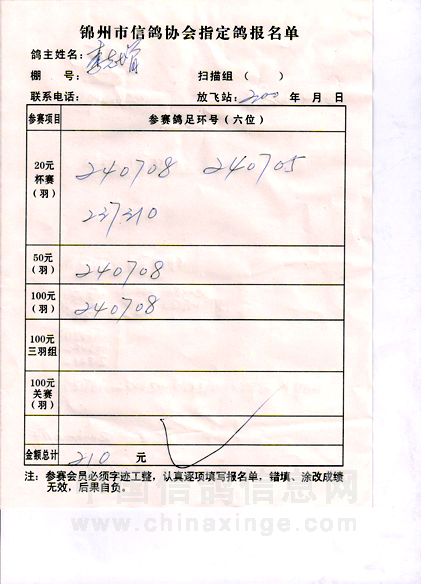 锦州市信鸽协会指定鸽报名单
鸽主姓名：李志增
棚　号：　扫描组（　）
联系电话：　放飞站：200　年　月　日
参赛项目　参赛鸽足环号（六位）
20元
杯赛
（羽）
240708　240705
237310
50元
（羽）
240708
100元
（羽）
240708
100元
三羽组
100元
关赛
（羽）
金额总计　210　元
注：参赛会员必须字迹工整，认真逐项填写报名单，错填、涂改成绩
无效，后果自负。
中国信鸽信息网
www.chinaxinge.com